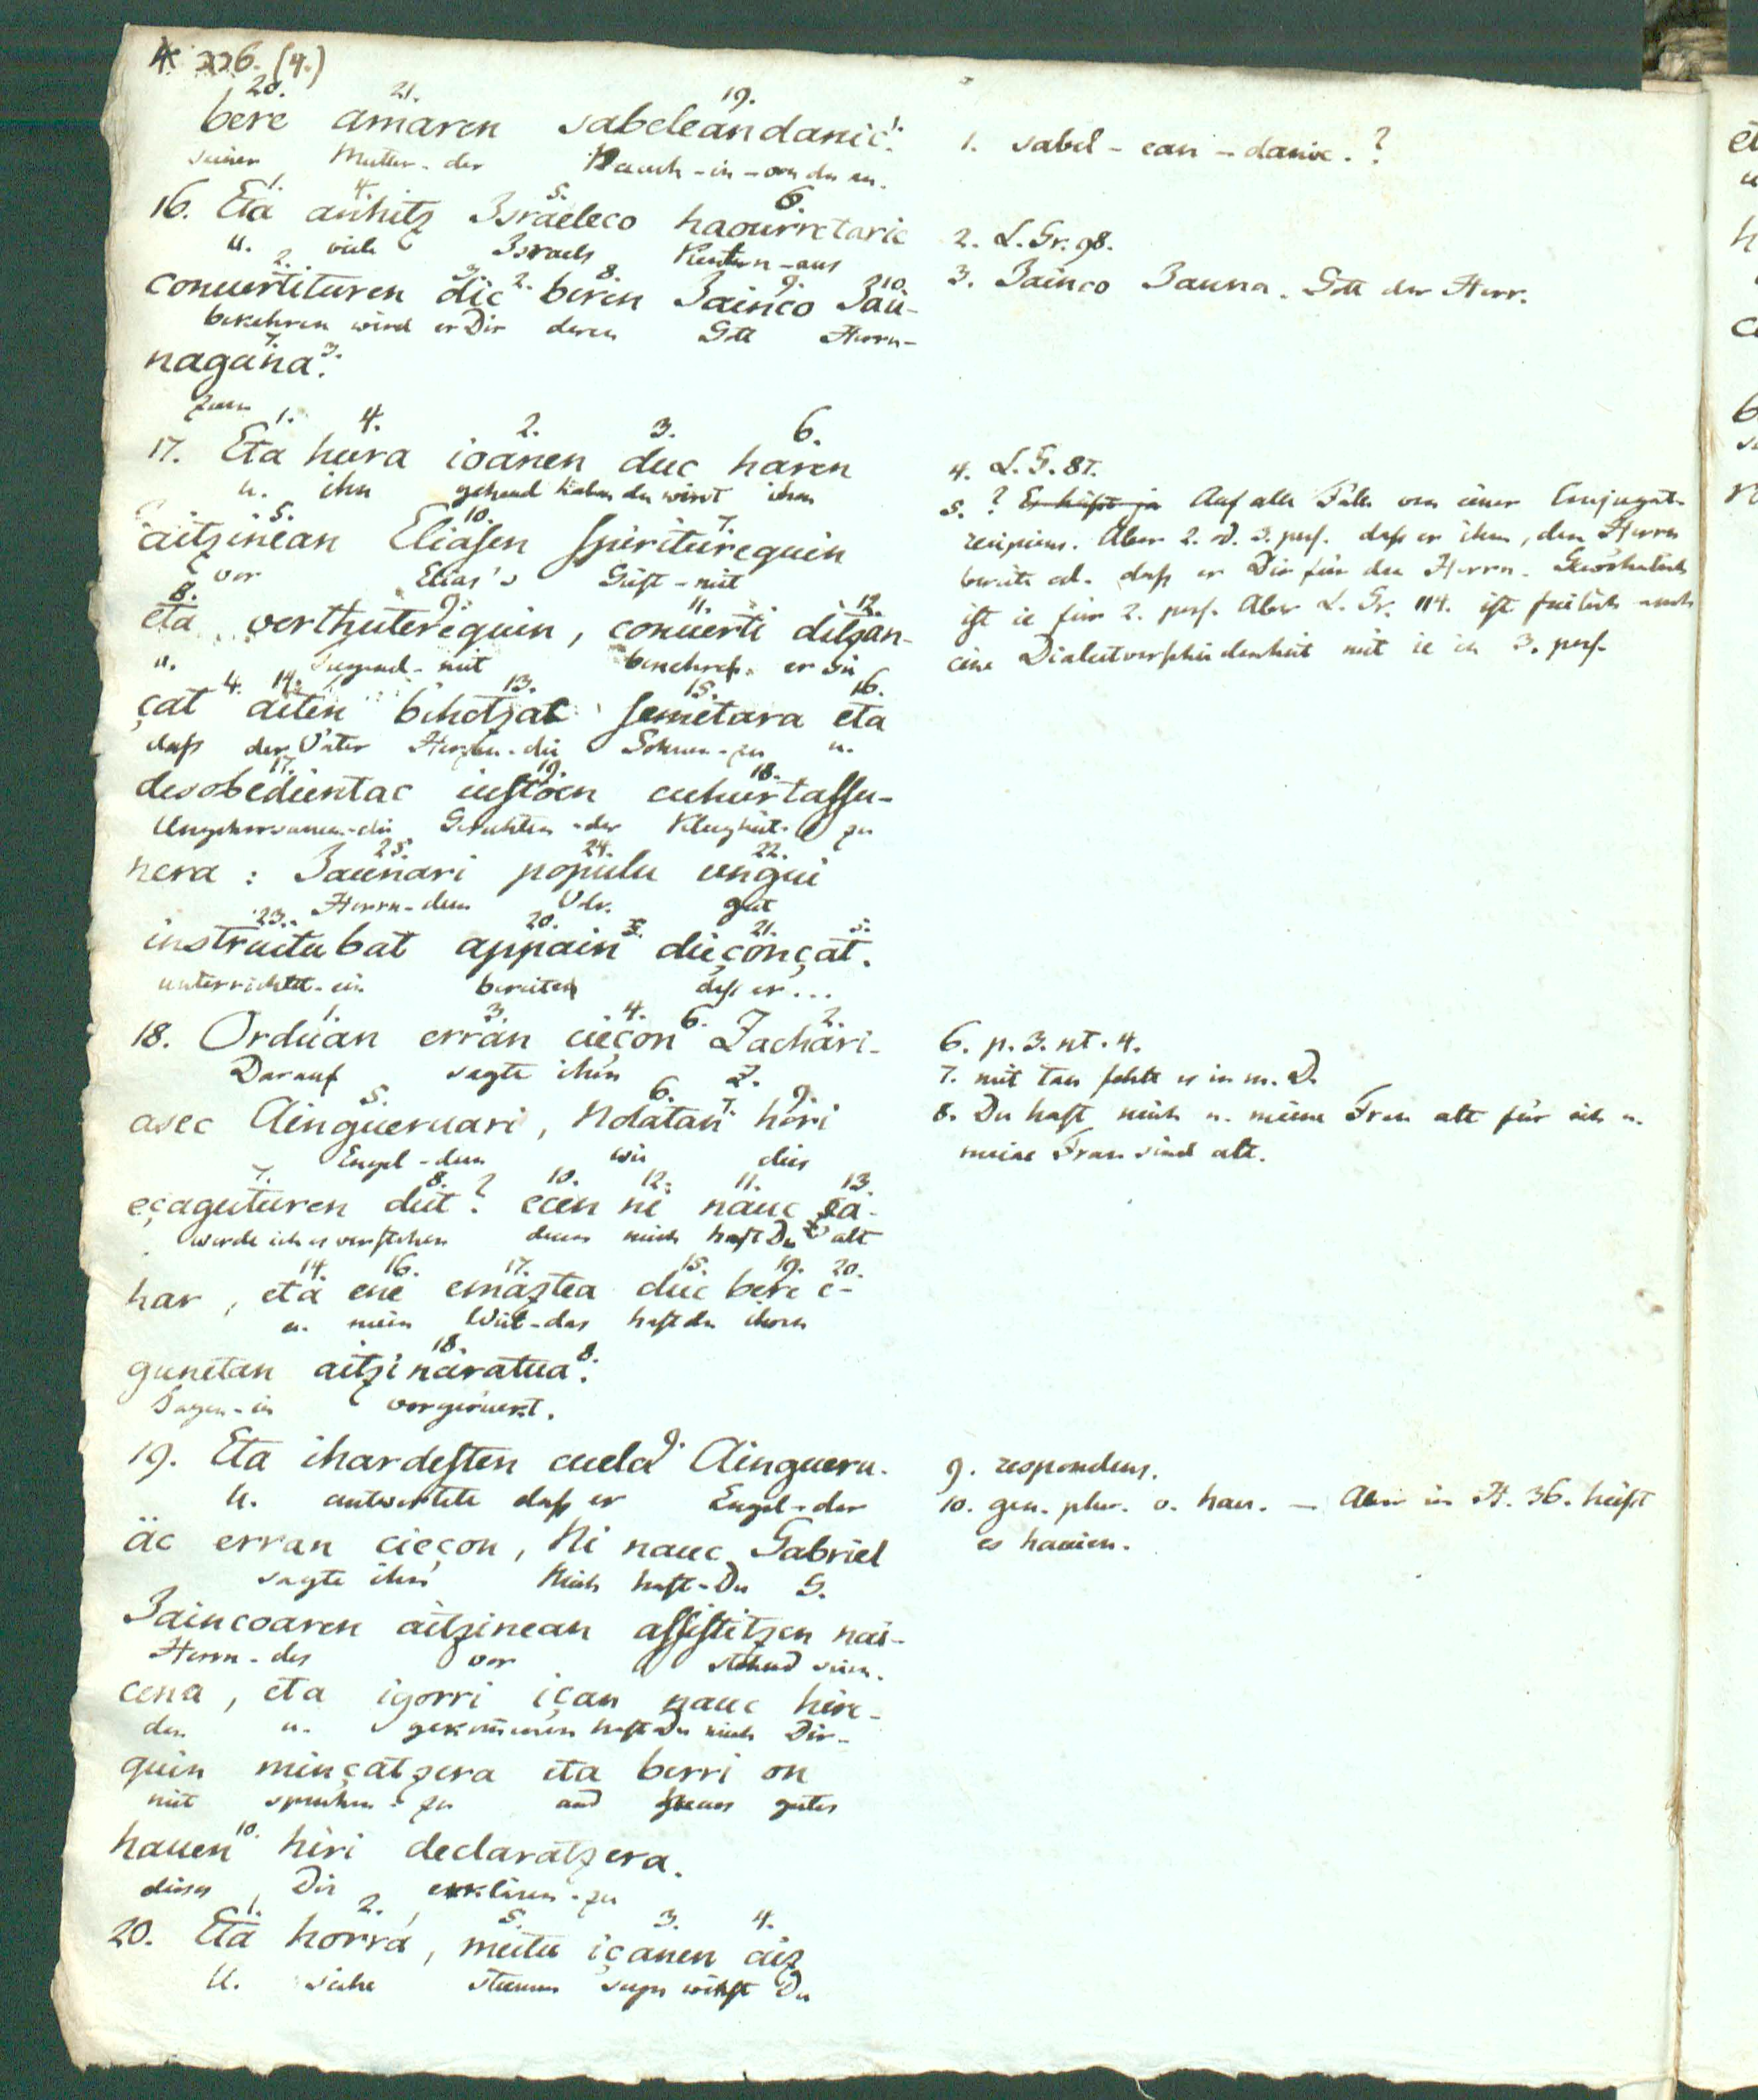 226. (4.)
20. 21. 19.
bere amaren sabeleandanic 1.
seiner Mutter-der Bauch-in-von da an.
1. 4. 5. 6.
16. Eta anhitz Israeleco haourretaric
u. viele Israels Kindern-aus
2. 3. 8. 9. 10.
conuertituren dic 2. beren Iainco Iau-
bekehren wird er Dir deren Gott Herrn-
7.
nagana 3.
zum
1. 4. 2. 3. 6.
17. Eta hura ioanen duc haren
u. ihn gehend haben du wirst ihm
5. 10. 7.
aitzinean Eliasen spiriturequin
vor Elias's Geist-mit
8. 9. 11. 12.
eta verthuterequin, conuerti ditzan-
u. Tugend-mit bekehren er sie
4. 14. 13. 15. 16.
çat aitén bihotzac semetara eta
daß der Väter Herzen-die Söhnen-zu u.
17. 19. 18.
desobedientac iustoén cuhurtassu-
Ungehorsamen-die Gerechten-der Klugheit-zu
25. 24. 22.
nera: Iaunari populu ungui
Herrn-dem Volk gut
23. 20. 21. 5.
instruitu bat appain dieçonçat.
unterrichtet-ein bereiten daß er...
1. 3. 4. 6. 2.
18. Orduan erran cieçon Zachari-
Darauf sagte ihm Z.
5. 6. 7. 9.
asec Ainguëruari, Nolatan hori
Engel-dem wie dies
7. 8. 10. 12. 11. 13.
eçaguturen dut? ecen ni nauc ça-
werde ich es verstehen denn mich hast Du alt
14. 16. 17. 15. 19. 20.
har, eta ene emaztea duc bere e-
u. mein Weib-das hast du ihren
18.
gunetan aitzinaratua 8.
Tagen-in vorgerückt.
19. Eta ihardesten cuela 9. Aingueru-
U. antwortete daß er Engel-der
äc erran cieçon, Ni nauc Gabriel
sagte ihm Mich hast-Du G.
Iaincoaren aitzinean assistitzen nai-
Herrn-des vor stehend sein.
cena, eta igorri içan nauc hire-
der u. gekommen hast Du mich Dir-
quin minçatzera eta berri on
mit sprechen-zu und Neues gutes
hauen 10. hiri declaratzera.
dieses Dir erklären-zu
1. 2. 5. 3. 4.
20. Eta horrá, mutu içanen aiz
U. siehe stumm seyn wirst Du
1. sabel-ean-danic.?
2. L. Gr. 98.
3. Iainco Iauna. Gott der Herr.
4. L. G. 87.
5. ? Auf alle Fälle von einer Conjugat.
recipiens. Aber 2. od. 3. pers. daß er ihm, dem Herrn
bereite od. daß er Dir für den Herrn. Gewöhnlich
ist ie für 2. pers. Aber L. Gr. 114. ist freilich auch
eine Dialectverschiedenheit mit ie in 3. pers.
6. p. 3. nt. 4.
7. mit tan fehlt es in m. D.
8. Du hast mich u. meine Frau alt für ich u.
meine Frau sind alt.
9. respondens.
10. gen. plur. v. hau. — Aber in V. 36. heißt
es hauien.